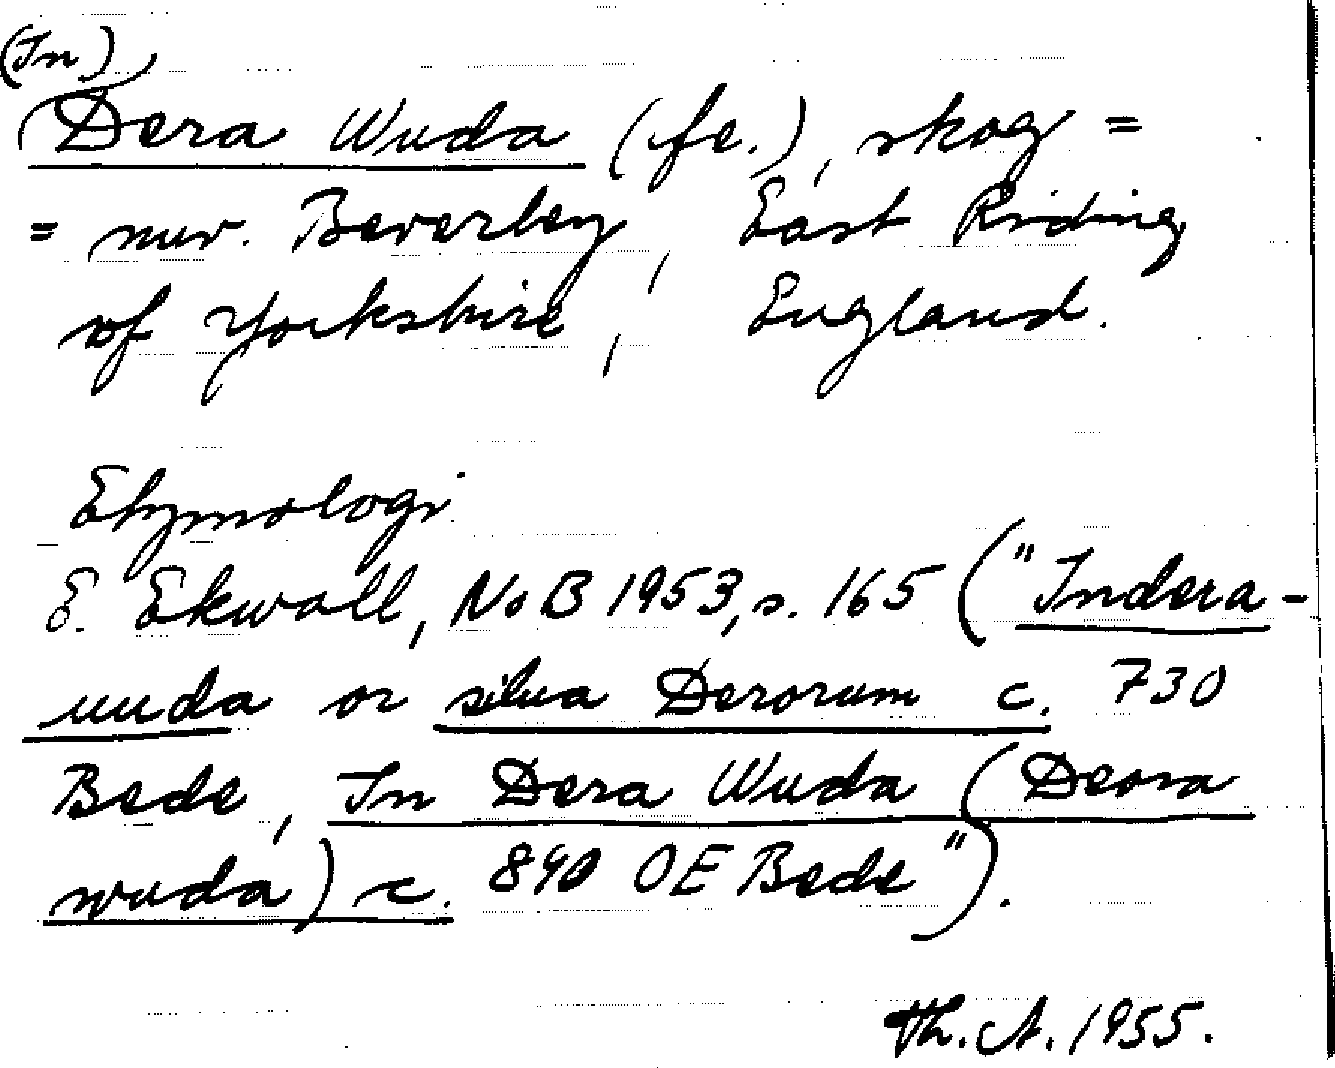 (In)
(Dera Wuda (fe.), skog =
= nuv. Beverley, East Riding
of Yorkshire, England.
Etymologi
E. Ekwall, NoB 1953, s. 165 ("Indera-
uuda or silua Derorum c. 730
Bede, In Dera Wuda (Deora
wuda) c. 890 OE Bede").
Th. A. 1955.